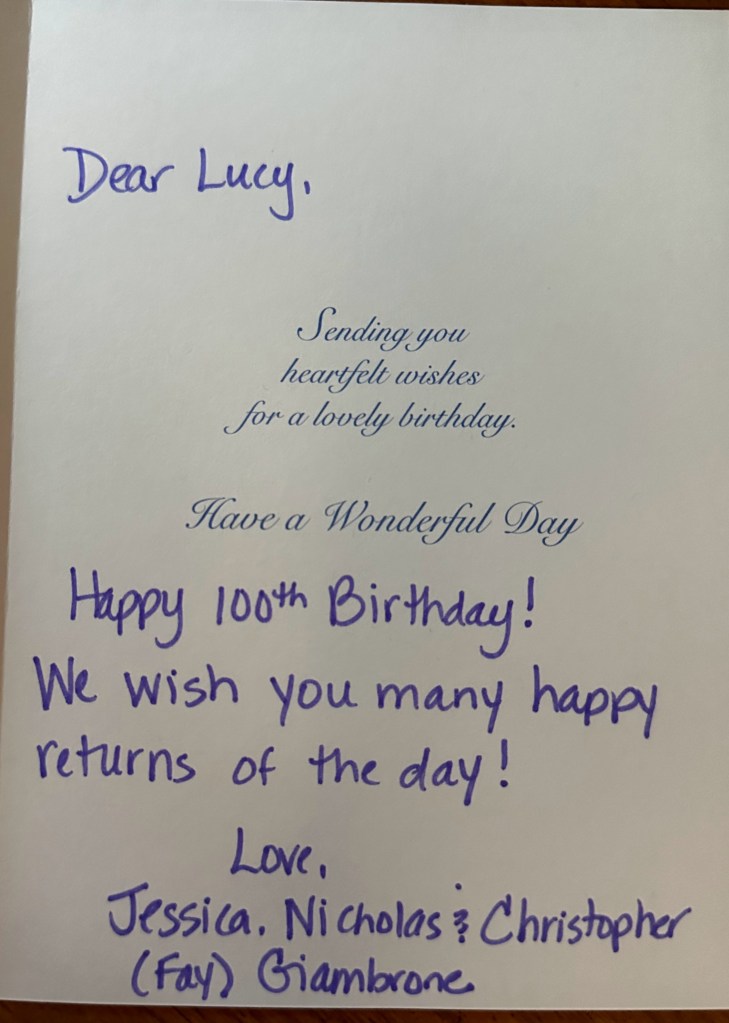 Dear Lucy,
Sending you
heartfelt wishes
for a lovely birthday.
Have a Wonderful Day
Happy 100th Birthday!
We wish you many happy
returns of the day!
Love,
Jessica, Nicholas & Christopher
(Fay) Giambrone